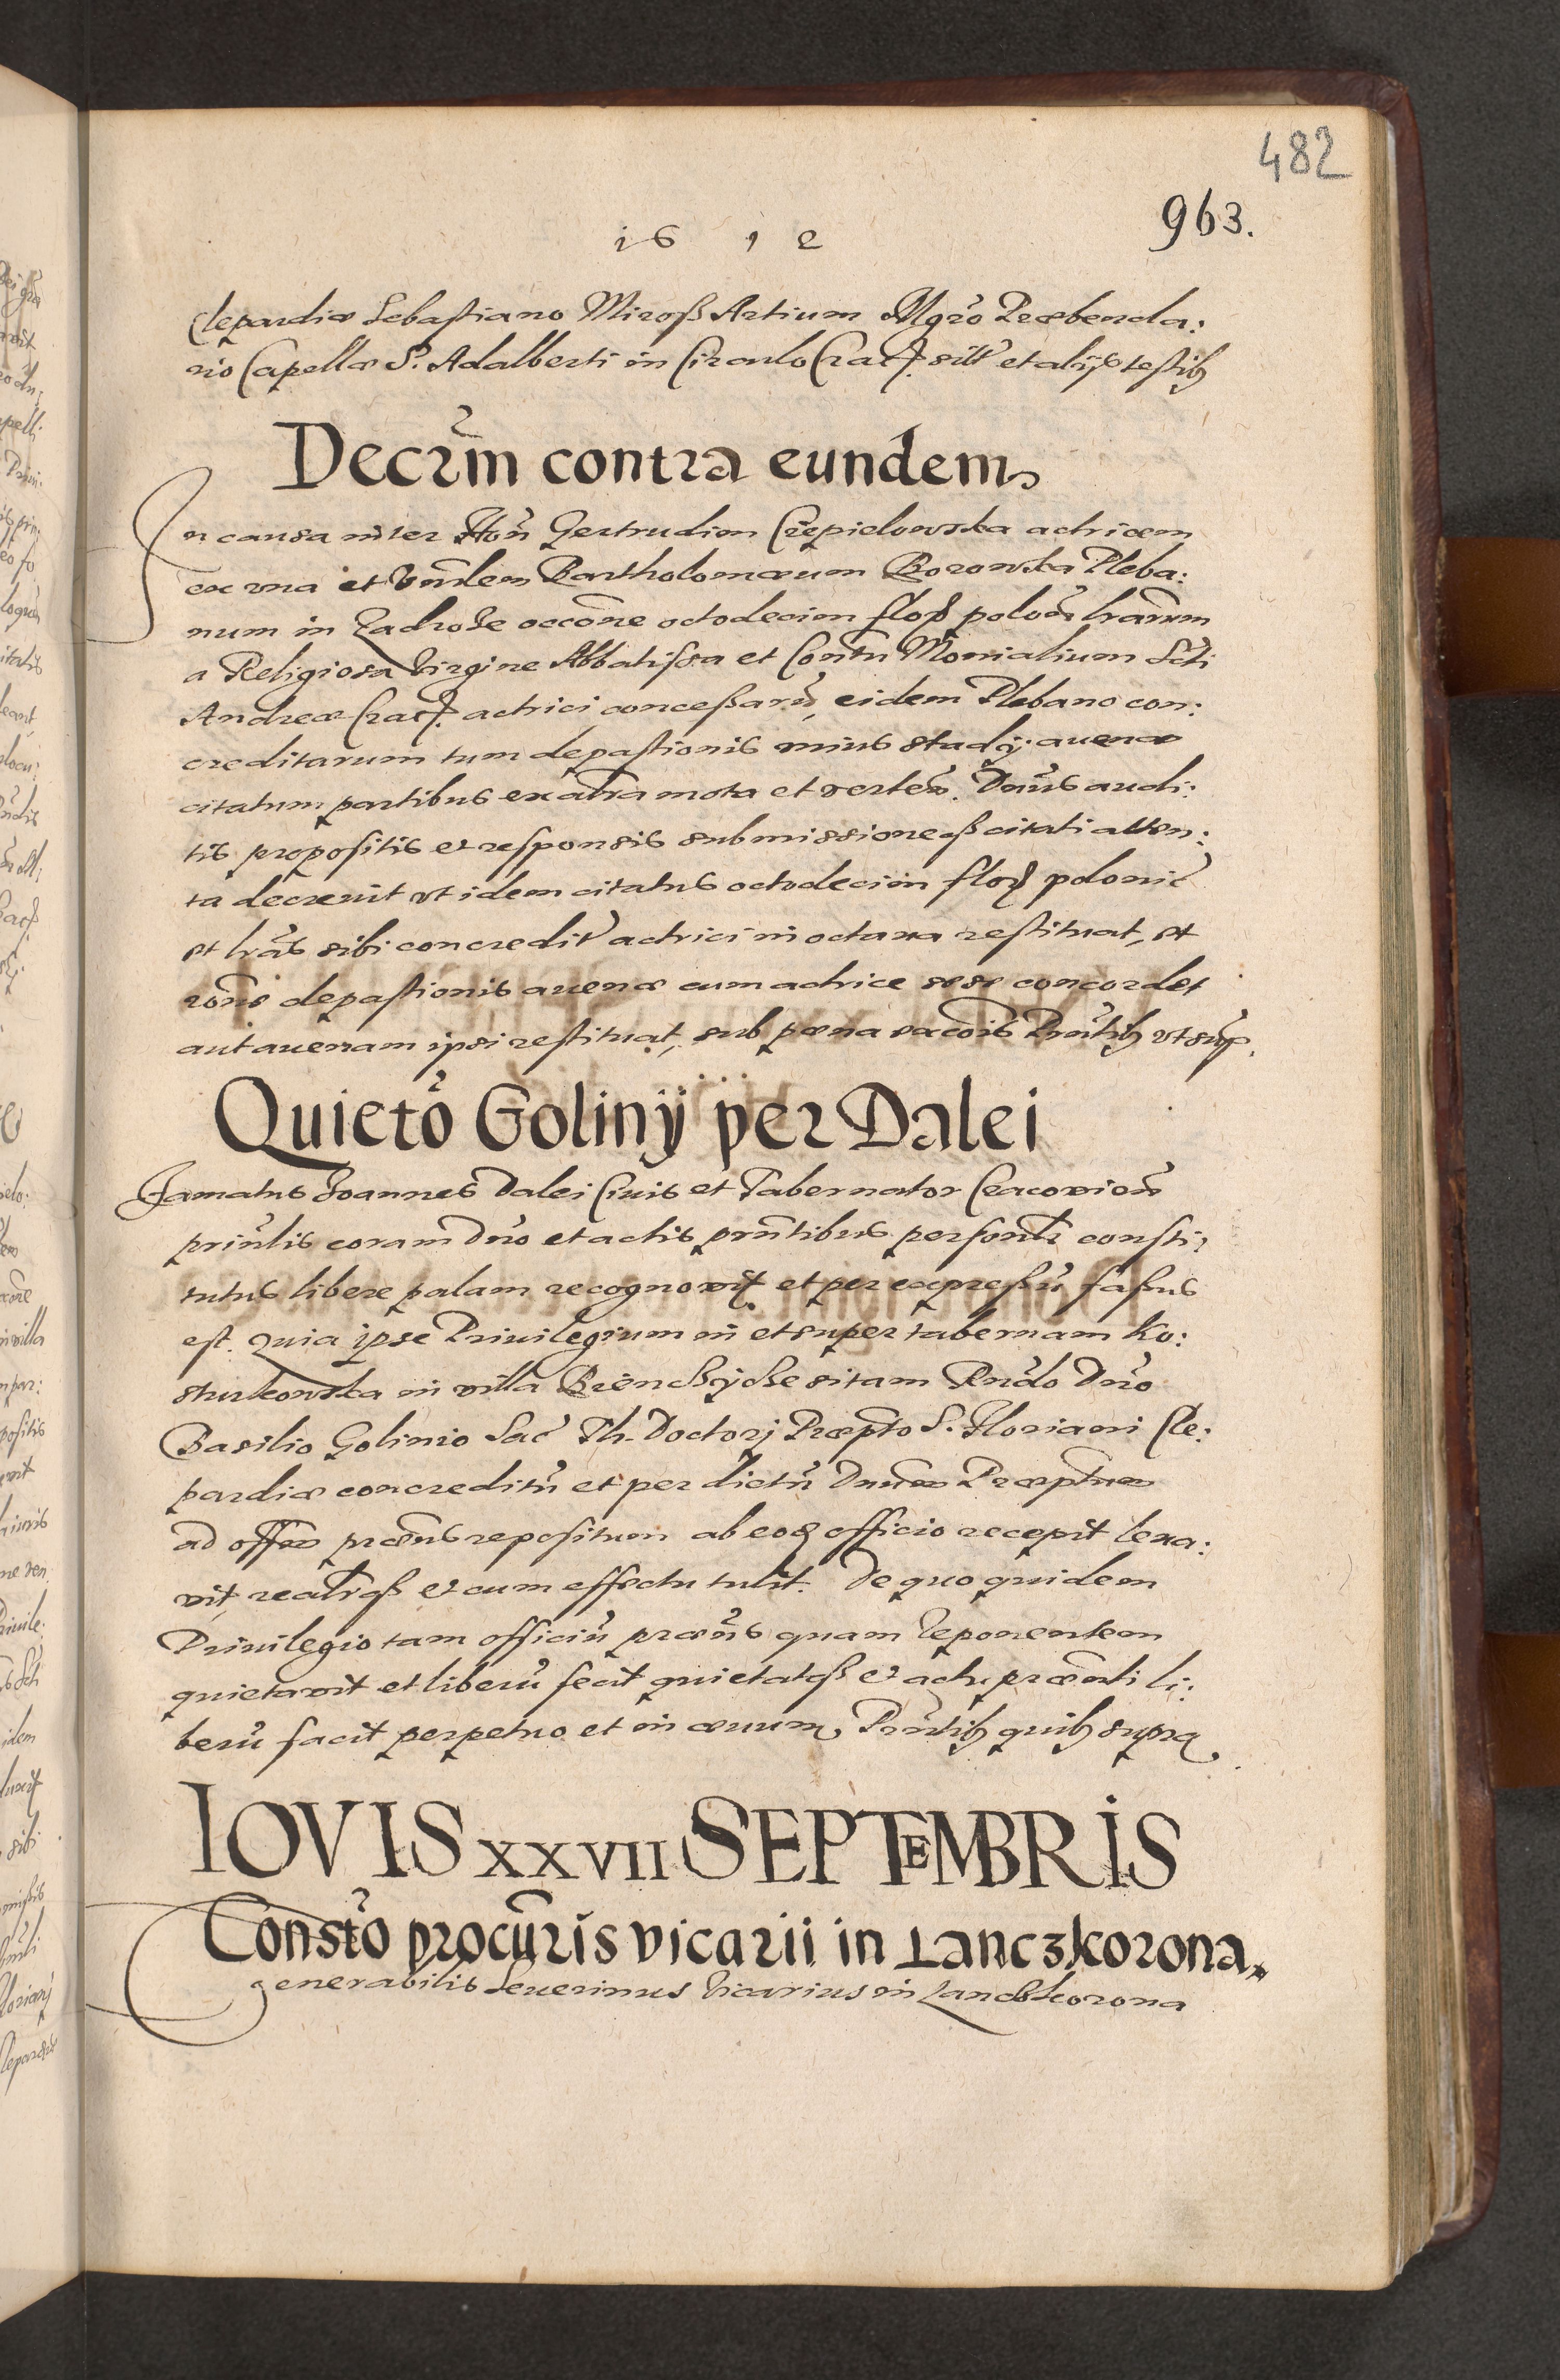 482
963.
1612
Clepardiæ Sebastiano Miroß Artium Mgro Præbenda:
rio Capellæ S. Adalberti in Circulo Crac. sitæ et alijs testib9
Decrm contra eundem
In causa inter Hon Gertrudim Crzepielowska actricem
ex vna et Vnrlem Bartholomæum Borowska Pleba:
num in Zadroże occone octodecim flor polon lrarum
a Religiosa Virgine Abbatissa et Contu Monialium Scti
Andreæ Crac. actrici conceßaru, eidem Plebano con:
creditarum tum depastionis vnius stadij auenæ
citatum partibus ex altra mota et verten. Dnus audi:
tis propositis et responsis submissioneq3 citati atten:
ta decreuit vt idem citatus octodecim flor polonic
et lras sibi concredit actrici in octaua restituat, et
rone depastionis auenæ cum actrice sese concordet
aut auenam ipsi restituat, sub pœna vacois Prntib9 vt sup.
Quietto Golinÿ per Dalei
Famatus Joannes Dalei Ciuis et Tabernator Cracouien
prinlis coram Dno et actis prntibus personlr consti:
tutus libere palam recognouit et per expreßu faßus
est. Quia ipse Priuilegium in et super tabernam Ko:
sturkowska in villa Brenczÿcze sitam Rndo Dno
Basilio Golinio Sac Th. Doctorj Præpto S. Floriani Cle:
pardiæ concreditu et per dictu Dnum Præptum
ad offm præns repositum ab eod officio recepit leua:
uit, realrq3 et cum effectu tulit. De quo quidem
Priuilegio tam officiu præns quam reponentem
quietauit et liberu fecit quietatq3 et actu præsenti li:
beru facit perpetuo et in æuum, Prntib9 quib9 supra
IOVIS XXVII SEPTEMBRIS
Constto procuris vicarii in Lanczkorona
Venerabilis Seuerinus Vicarius in Lanczkorona